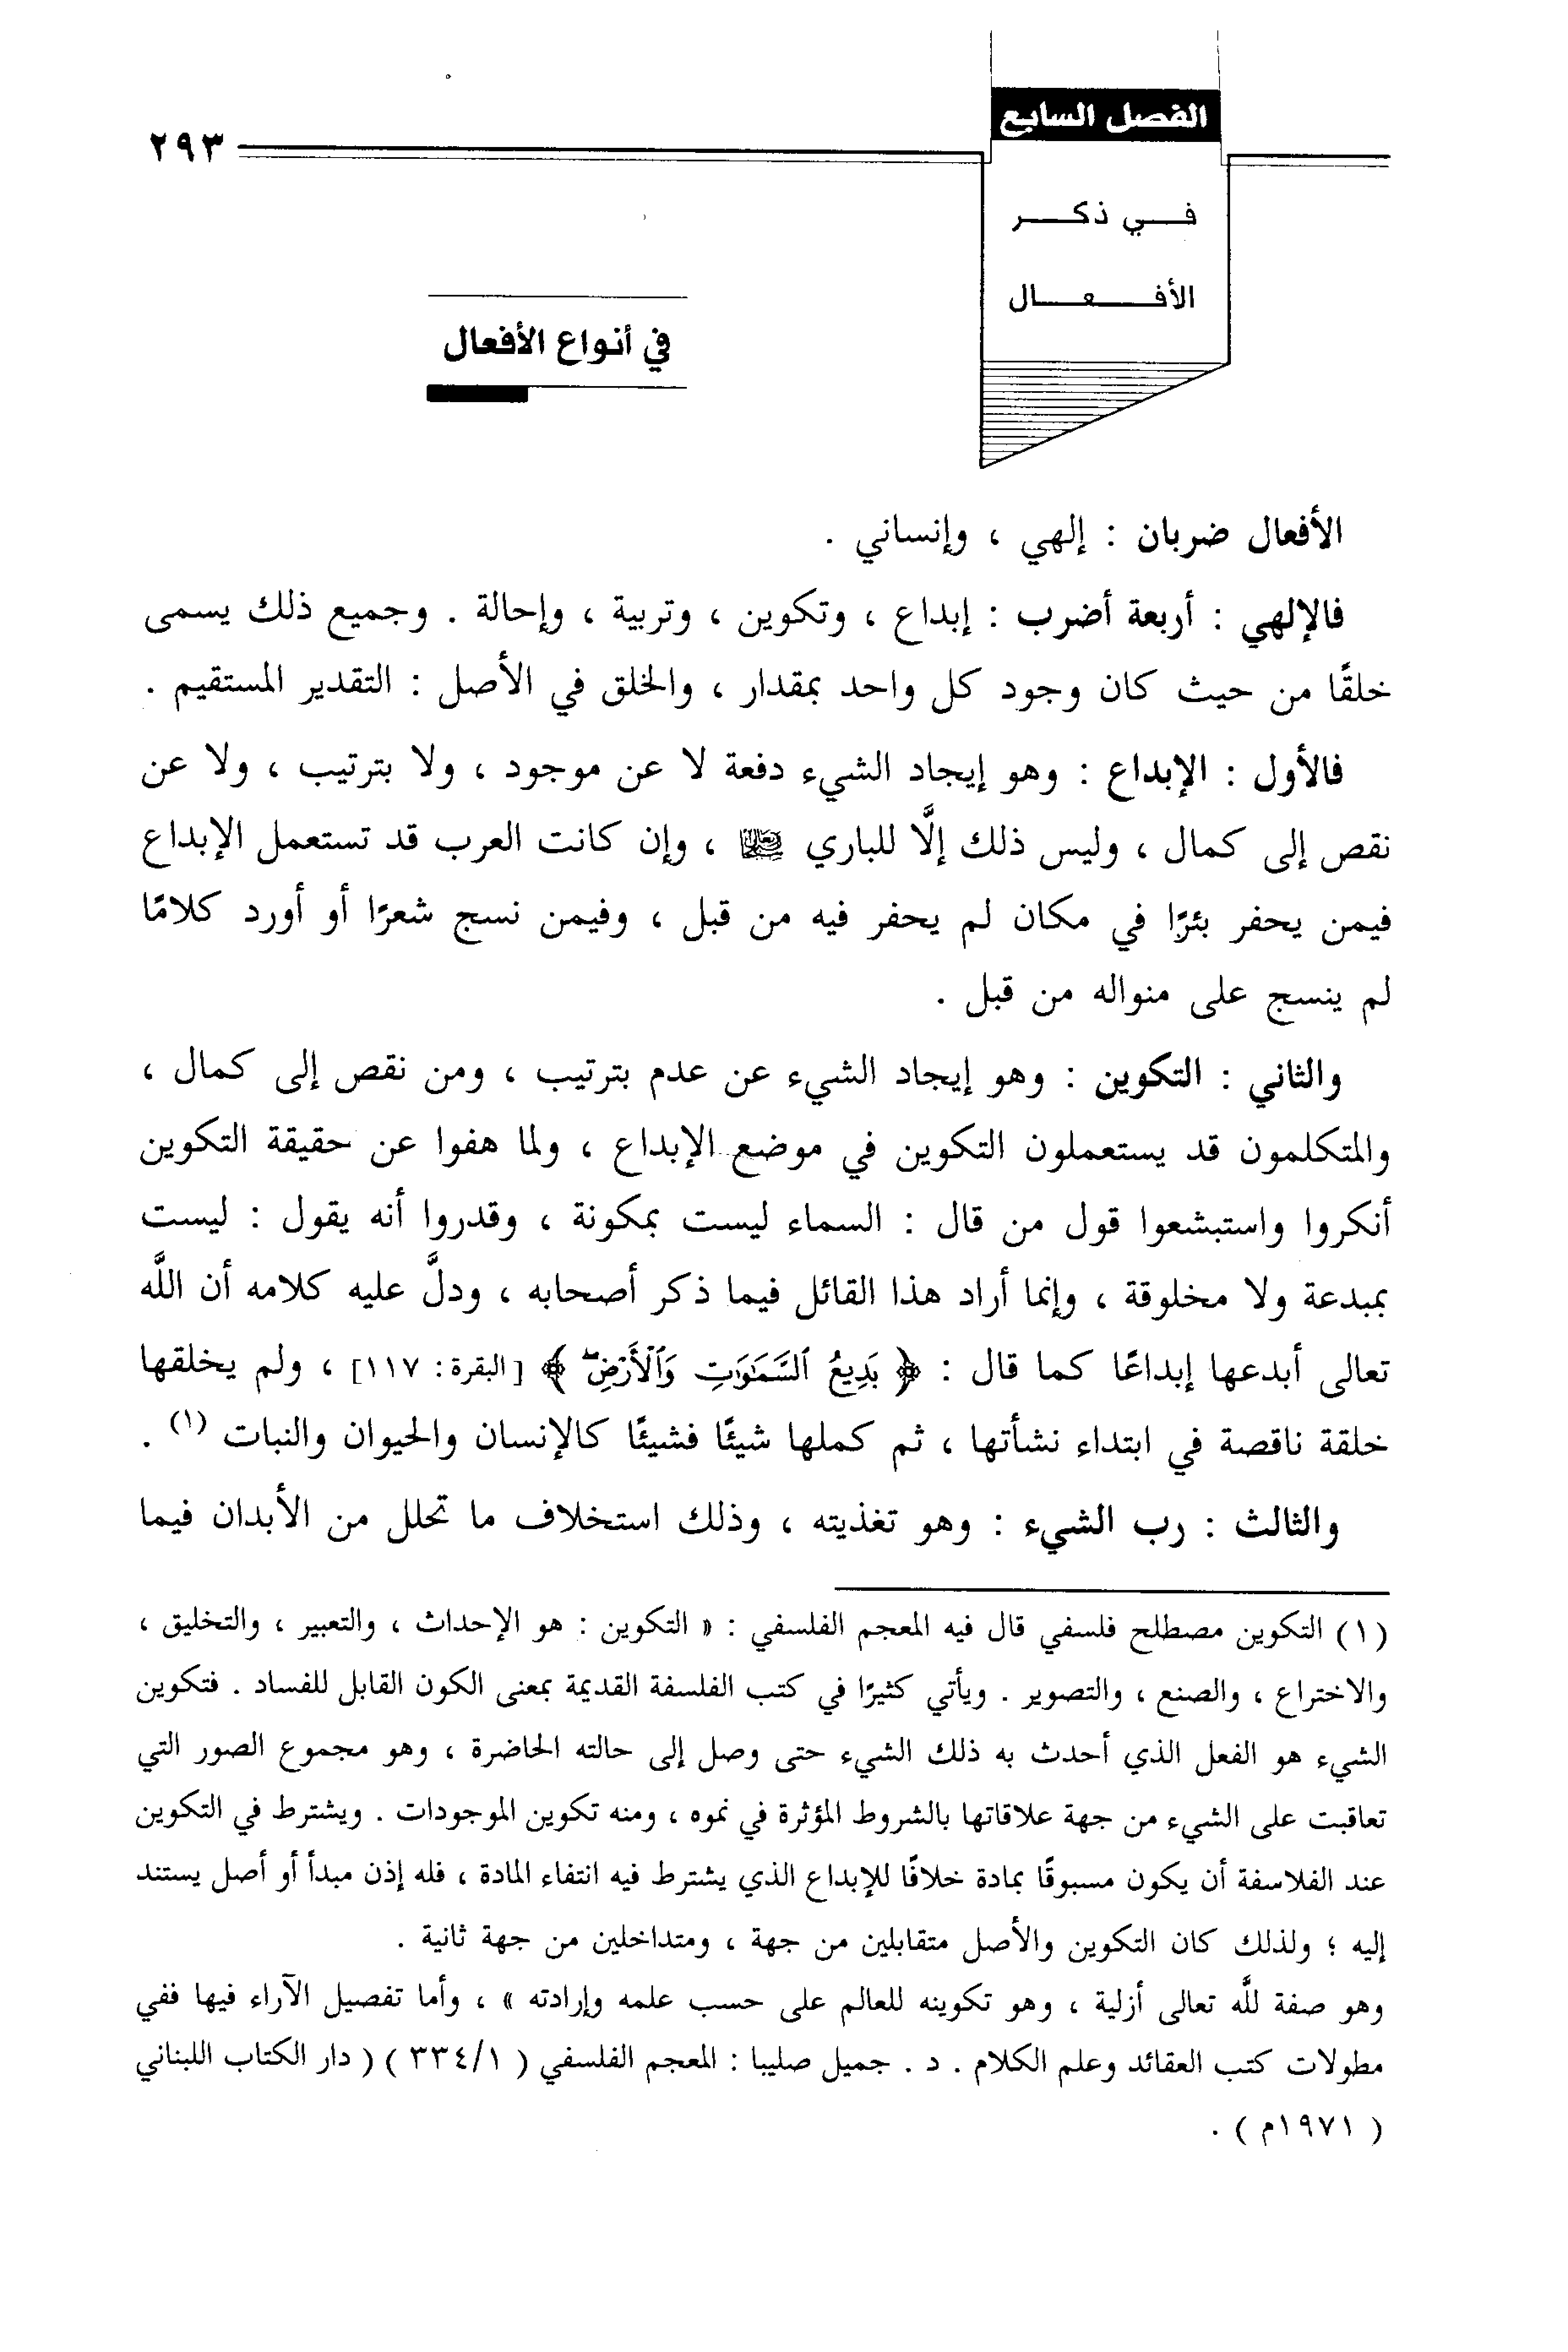 الفصل السابع
٢٩٣
في ذكر
الأفعال
في أنواع الأفعال
الأفعال ضربان : إلهي ، وإنساني .
فالإلهي : أربعة أضرب : إبداع ، وتكوين ، وتربية ، وإحالة . وجميع ذلك يسمى
خلقًا من حيث كان وجود كل واحد بمقدار ، والخلق في الأصل : التقدير المستقيم .
فالأول : الإبداع : وهو إيجاد الشيء دفعة لا عن موجود ، ولا بترتيب ، ولا عن
نقص إلى كمال ، وليس ذلك إلَّا للباري ، وإن كانت العرب قد تستعمل الإبداع
فيمن يحفر بئرًا في مكان لم يحفر فيه من قبل ، وفيمن نسج شعرًا أو أورد كلامًا
لم ينسج على منواله من قبل .
والثاني : التكوين : وهو إيجاد الشيء عن عدم بترتيب ، ومن نقص إلى كمال ،
والمتكلمون قد يستعملون التكوين في موضع الإبداع ، ولما هفوا عن حقيقة التكوين
أنكروا واستبشعوا قول من قال : السماء ليست بمكونة ، وقدروا أنه يقول : ليست
بمبدعة ولا مخلوقة ، وإنما أراد هذا القائل فيما ذكر أصحابه ، ودلَّ عليه كلامه أن اللَّه
تعالى أبدعها إبداعًا كما قال : ﴿ بَدِيعُ ٱلسَّمَٰوَٰتِ وَٱلْأَرْضِۖ ﴾ [البقرة: ١١٧] ، ولم يخلقها
خلقة ناقصة في ابتداء نشأتها ، ثم كملها شيئًا فشيئًا كالإنسان والحيوان والنبات (١) .
والثالث : رب الشيء : وهو تغذيته ، وذلك استخلاف ما تحلل من الأبدان فيما
(١) التكوين مصطلح فلسفي قال فيه المعجم الفلسفي : « التكوين : هو الإحداث ، والتعبير ، والتخليق ،
والاختراع ، والصنع ، والتصوير . ويأتي كثيرًا في كتب الفلسفة القديمة بمعنى الكون القابل للفساد . فتكوين
الشيء هو الفعل الذي أحدث به ذلك الشيء حتى وصل إلى حالته الحاضرة ، وهو مجموع الصور التي
تعاقبت على الشيء من جهة علاقاتها بالشروط المؤثرة في نموه ، ومنه تكوين الموجودات . ويشترط في التكوين
عند الفلاسفة أن يكون مسبوقًا بمادة خلافًا للإبداع الذي يشترط فيه انتفاء المادة ، فله إذن مبدأ أو أصل يستند
إليه ؛ ولذلك كان التكوين والأصل متقابلين من جهة ، ومتداخلين من جهة ثانية .
وهو صفة للَّه تعالى أزلية ، وهو تكوينه للعالم على حسب علمه وإرادته » ، وأما تفصيل الآراء فيها ففي
مطولات كتب العقائد وعلم الكلام . د . جميل صليبا : المعجم الفلسفي ( ٣٣٤/١ ) ( دار الكتاب اللبناني
( ١٩٧١م ) .